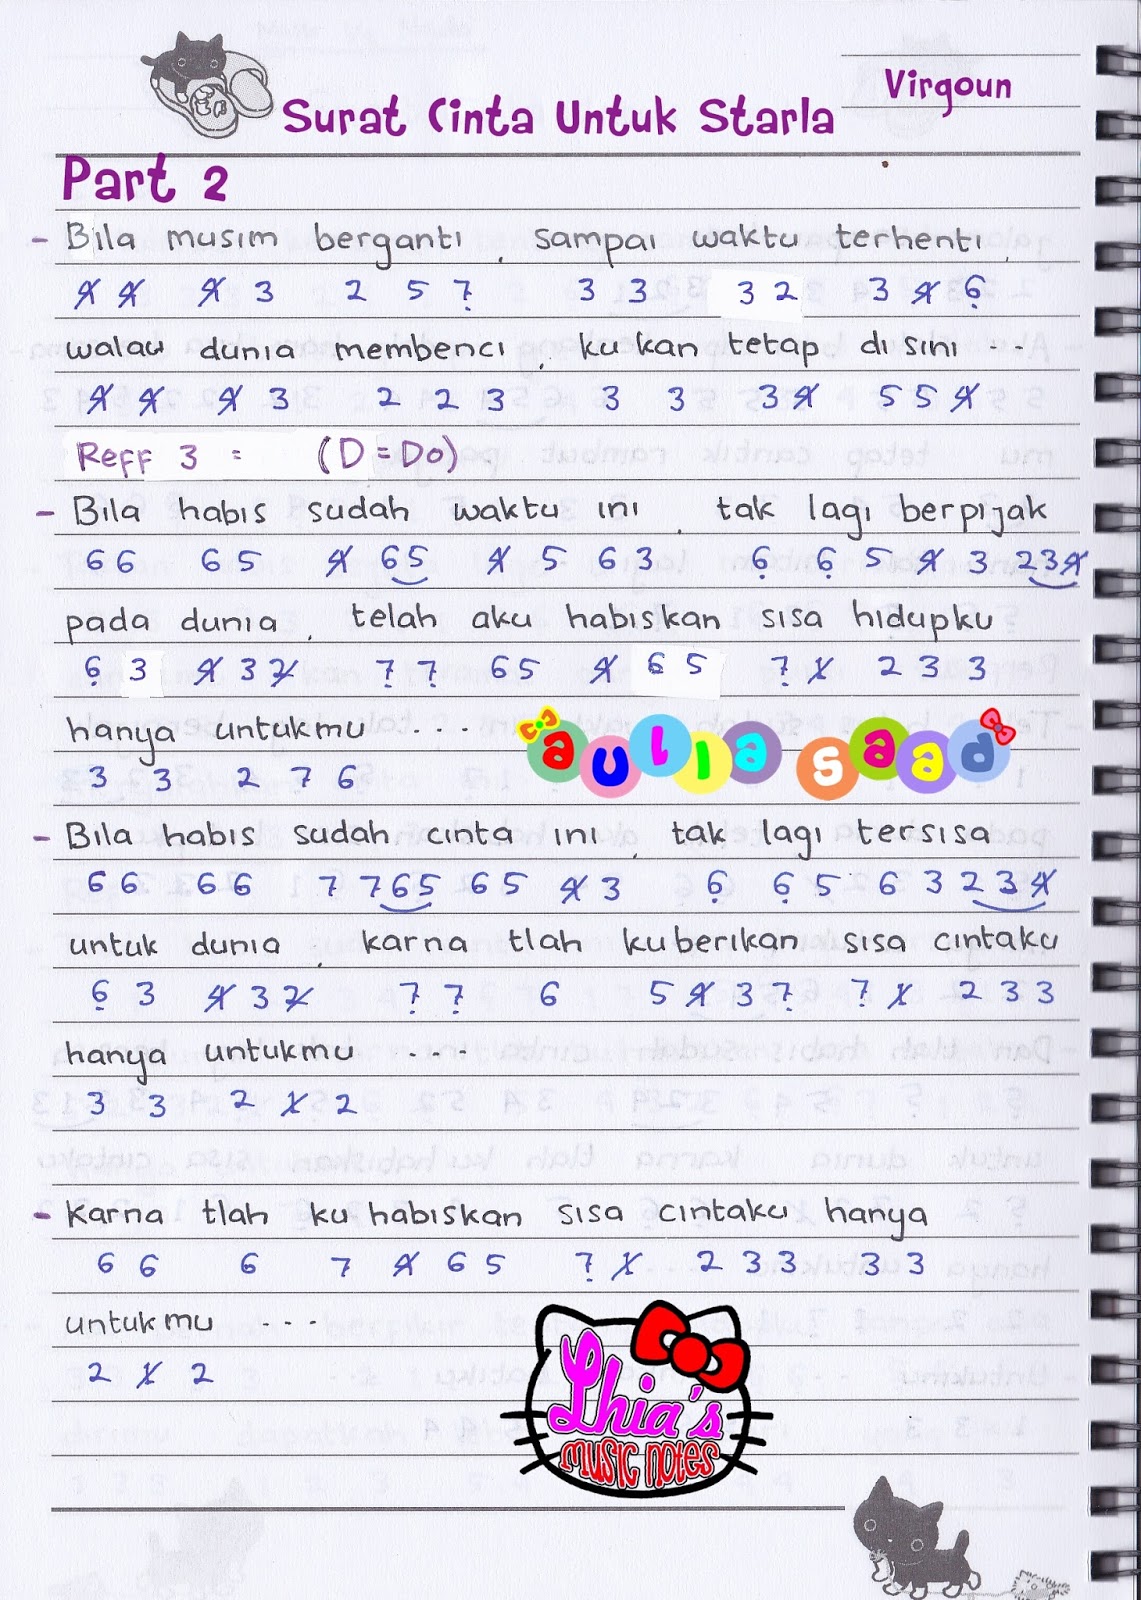 Virgoun
Surat Cinta Untuk Starla
Part 2
- Bila musim berganti, sampai waktu terhenti,
4̸ 4̸ 4̸ 3 2 5 7̣ 3 3 3 2 3 4̸ 6̣
walau dunia membenci, ku kan tetap disini ...
4̸ 4̸ 4̸ 3 2 2 3 3 3 3 4̸ 5 5 4̸
Reff 3 = (D = Do)
- Bila habis sudah waktu ini, tak lagi berpijak
6 6 6 5 4̸ 6 5 4̸ 5 6 3 6̣ 6̣ 5 4̸ 3 2 3 4̸
pada dunia, telah aku habiskan sisa hidupku
6̣ 3 4̸ 3 2̸ 7̣ 7̣ 6 5 4̸ 6 5 7̣ 1̸ 2 3 3
hanya untukmu ....
3 3 2 7 6
aulia saad
- Bila habis sudah cinta ini, tak lagi tersisa
6 6 6 6 7 7 6 5 6 5 4̸ 3 6̣ 6̣ 5 6 3 2 3 4̸
untuk dunia, karna tlah kuberikan sisa cintaku
6̣ 3 4̸ 3 2̸ 7̣ 7̣ 6 5 4̸ 3 7̣ 7̣ 1̸ 2 3 3
hanya untukmu ....
3 3 2 1̸ 2
- Karna tlah ku habiskan sisa cintaku hanya
6 6 6 7 4̸ 6 5 7̣ 1̸ 2 3 3 3 3
untukmu ...
2 1̸ 2
Lhia's
MUSIC NOTES